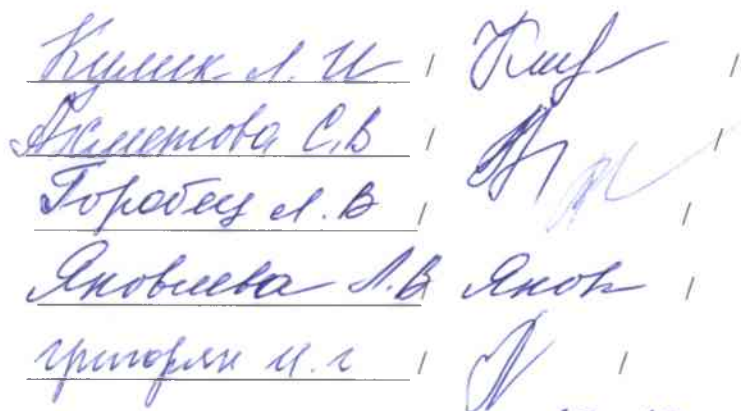 Кулик Л. И / /
Ахметова С.В / /
Горобец Л. В /
Яковлева Л.В / Яков /
григорян и. г / /